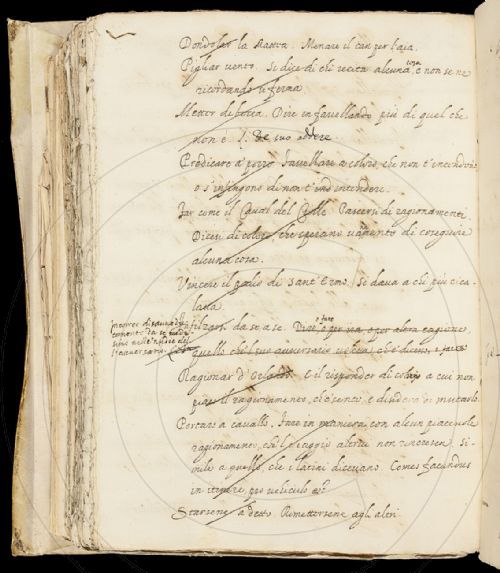 Dondolar la Mattea. Menare il can per l'aia.
Pigliar vento. Si dice di chi recita alcuna cosa, e non se ne
ricordando si ferma
Metter di bocca. Dire in favellando più di quel che
non è
Predicare a' porri favellare a coloro, che non t'intendono
o s'infingono di non t'intendere.
Far come il Caval del Pascersi di ragionamenti
Dicesi di coloro che sperano vanamento di coseguire
alcuna cosa.
Vincere il palio di Sant' Ermo. Si dava a chi più cica-
lava
Infilzarsi da se a se. Dire, o fare
per altra cagione
quello che 'l suo avversario voleva, che e' dicesse, o facesse
Ragionar d' Orlando. è il risponder di coloro a cui non
piace il ragionamento, ch'e' sente, e disidera di mutarlo.
Portare a cavallo. Fare in maniera con alcun piacevole
ragionamento, ch' l'viaggio altrui non rincresca. Si-
mile a quello, che i latini dicevano. Comes facundus
in itinere, pro vehiculo est
Starsene a detto. Rimettersene agli altri